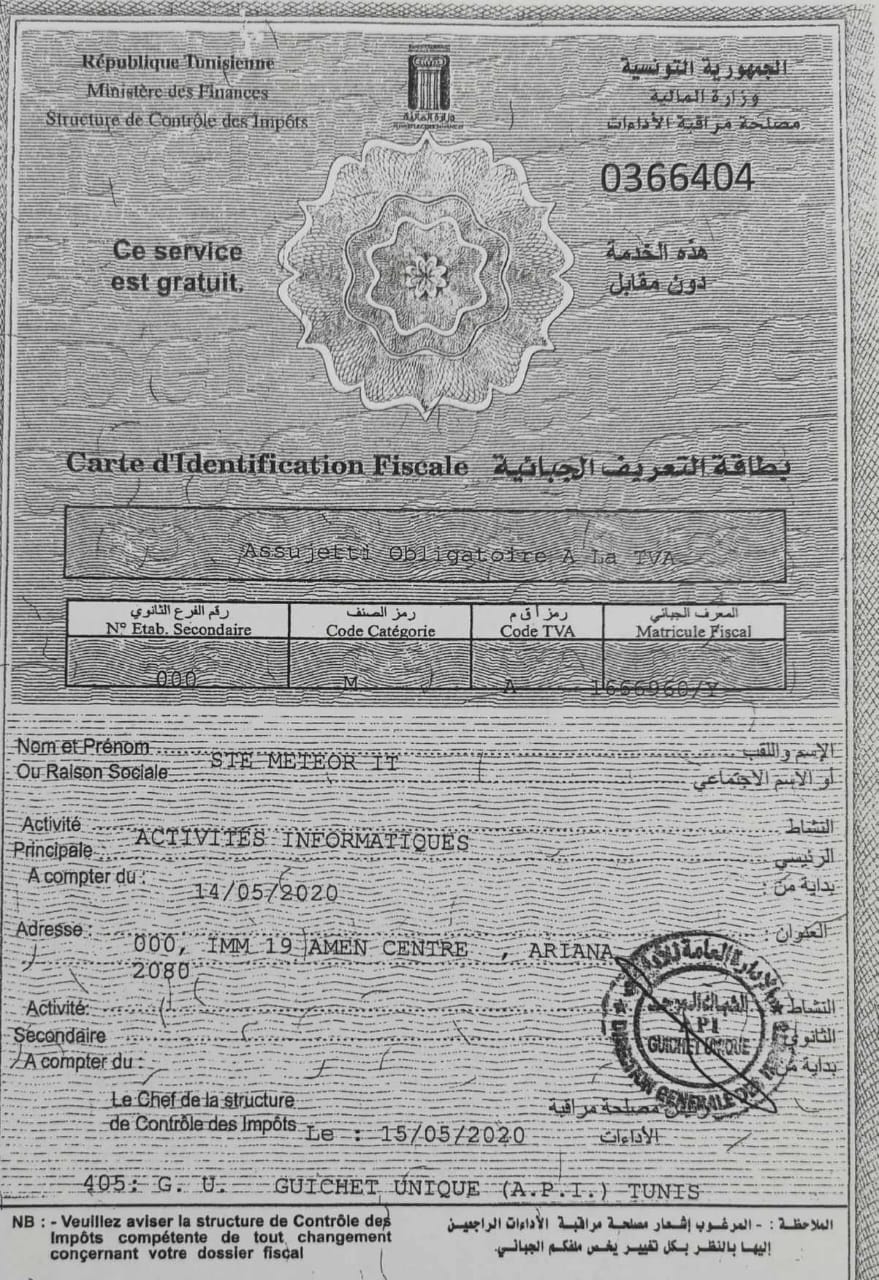 République Tunisienne
Ministère des Finances
Structure de Contrôle des Impôts
وزارة المالية
الجمهورية التونسية
وزارة المالية
مصلحة مراقبة الأداءات
0366404
Ce service
est gratuit.
هذه الخدمة
دون مقابل
Carte d'Identification Fiscale بطاقة التعريف الجبائية
Assujetti Obligatoire A La TVA
رقم الفرع الثانوي رمز الصنف رمز أ ق م المعرف الجبائي
N° Etab. Secondaire Code Catégorie Code TVA Matricule Fiscal
000 M A 1666960/Y
Nom et Prénom الإسم واللقب
Ou Raison Sociale STE METEOR IT أو الإسم الاجتماعي
Activité النشاط
Principale ACTIVITES INFORMATIQUES الرئيسي
A compter du : 14/05/2020 بداية من :
Adresse : 000, IMM 19 AMEN CENTRE , ARIANA العنوان :
2080
Activité: النشاط
Secondaire الثانوي
A compter du : بداية من
الشباك الموحد
API
GUICHET UNIQUE
DIRECTION GENERALE DES
Le Chef de la structure
de Contrôle des Impôts
مصلحة مراقبة
الأداءات
Le : 15/05/2020
405: G. U. GUICHET UNIQUE (A.P.I.) TUNIS
NB : - Veuillez aviser la structure de Contrôle des
Impôts compétente de tout changement
concernant votre dossier fiscal
الملاحظة : - المرغوب إشعار مصلحة مراقبة الأداءات الراجعين
إليها بالنظر بكل تغيير يخص ملفكم الجبائي.